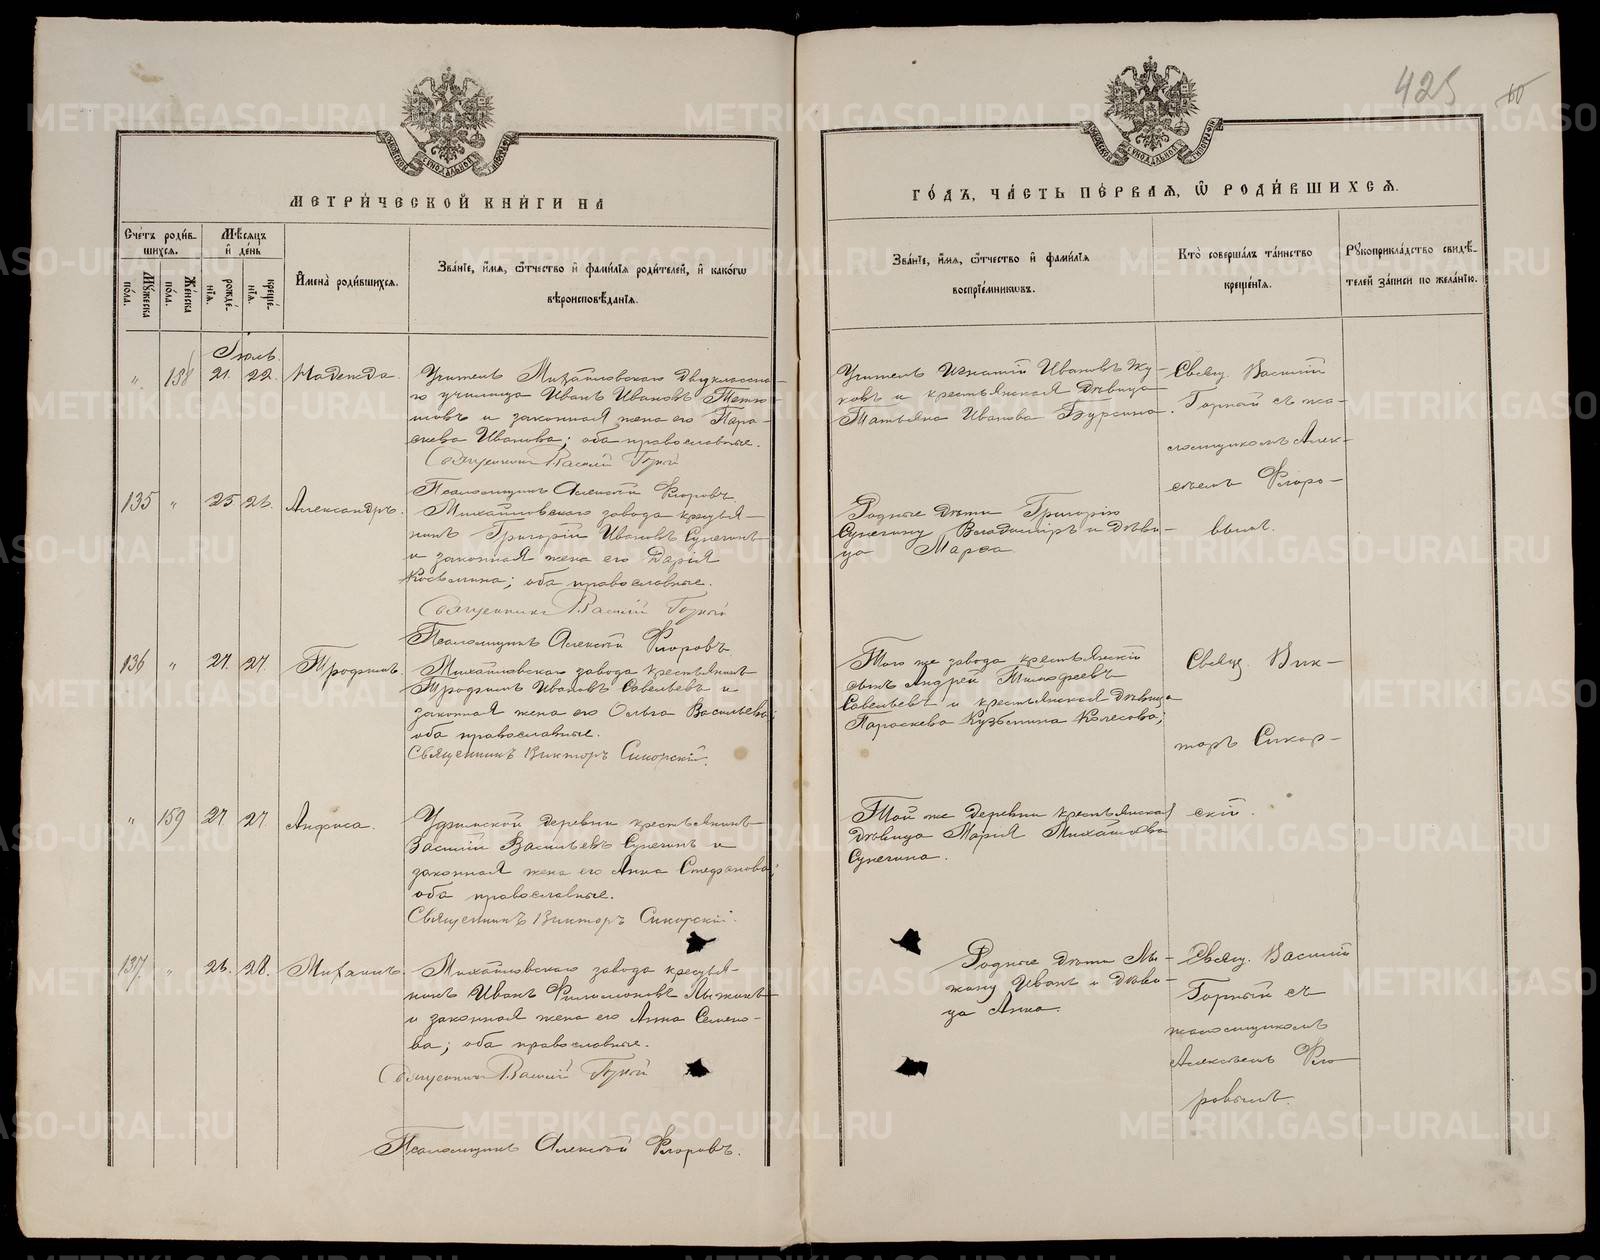 425
60
МЕТРИ́ЧЕСКОЙ КНИ́ГИ НА
ГО́ДЪ, ЧА́СТЬ ПЕ́РВАЯ, Ѡ РОДИ́ВШИХСЯ.
Сче́тъ роди́в-
шихся.
Мꙋжеска по́ла.
Же́нска по́ла.
Мѣ́сяцъ
и де́нь
рожде́-нія.
креще́-нія.
Имена̀ роди́вшихся.
Зва́ніе, и́мя, ѻ́тчество и фами́лія роди́телей, и како́гѡ
вѣроисповѣ́данія.
Зва́ніе, и́мя, ѻ́тчество и фами́лія
воспріе́мникѡвъ.
Кто̀ соверша́лъ та́инство
креще́нія.
Рꙋкоприкла́дство свидѣ́-
телей за́писи по жела́нію.
Іюль.
" 158 21. 22. Надежда.
Учитель Михайловскаго двухклассна-
го училища Иванъ Ивановъ
и законная жена его Пара-
скева Иванова; оба православные.
Священникъ Василій Горный
Псаломщикъ Алексѣй Флоровъ.
Учитель Игнатій Ивановъ Жу-
ковъ и крестьянская дѣвица
Татьяна Иванова Бурсина.
Свящ. Василій
Горный съ пса-
ломщикомъ Алек-
сѣемъ Флоро-
вымъ.
135 " 25 26. Александръ.
Михайловскаго завода крестья-
нинъ Григорій Ивановъ Супегинъ
и законная жена его Дарія
Косьмина; оба православные.
Священникъ Василій Горный
Псаломщикъ Алексѣй Флоровъ.
Родные дѣти Григорію
Супегину Владиміръ и дѣви-
ца Марѳа
136 " 27. 27. Трофимъ.
Михайловскаго завода крестьянинъ
Трофимъ Ивановъ Савельевъ и
законная жена его Ольга Васильева;
оба православные.
Священникъ Викторъ Сикорскій.
Того же завода крестьянскій
сынъ Андрей Тимофеевъ
Савельевъ и крестьянская дѣвица
Параскева Кузьмина Колесова;
Свящ. Вик-
торъ Сикор-
скій.
" 159 27 27 Анфиса.
Уфимской деревни крестьянинъ
Василій Васильевъ Супегинъ и
законная жена его Анна Стефанова;
оба православные.
Священникъ Викторъ Сикорскій.
Той же деревни крестьянская
дѣвица Марія Михайлова
Супегина.
137. " 26. 28. Михаилъ.
Михайловскаго завода крестья-
нинъ Иванъ Филимоновъ Лыжинъ
и законная жена его Анна Семено-
ва; оба православные.
Священникъ Василій Горный
Псаломщикъ Алексѣй Флоровъ.
Родные дѣти Лы-
жину Иванъ и дѣви-
ца Анна.
Свящ. Василій
Горный съ
псаломщикомъ
Алексѣемъ Фло-
ровымъ.